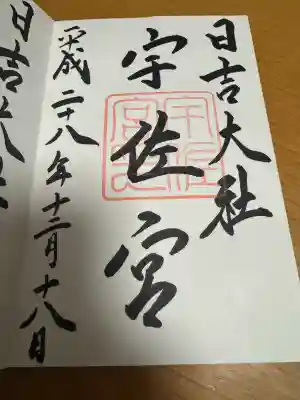 日吉大社
宇佐宮
平成二十八年十二月十八日
日吉大